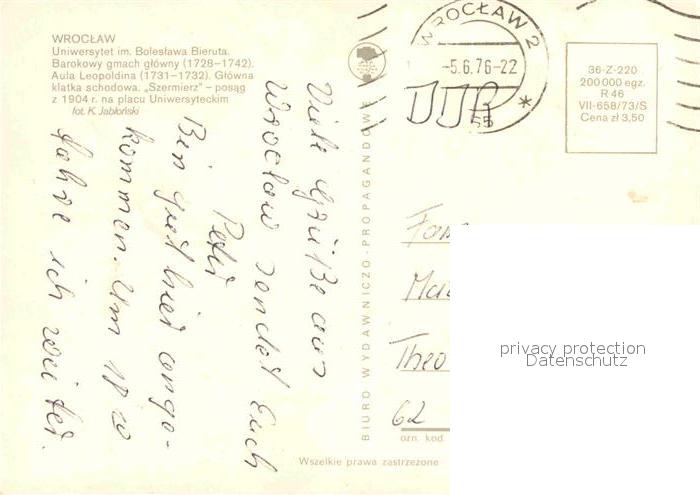 WROCŁAW
Uniwersytet im. Bolesława Bieruta.
Barokowy gmach główny (1728–1742).
Aula Leopoldina (1731–1732). Główna
klatka schodowa. „Szermierz” – posąg
z 1904 r. na placu Uniwersyteckim
fot. K. Jabłoński
WROCŁAW 2
-5.6.76-22
55
*
DDR
36-Z-220
200 000 egz.
R 46
VII-658/73/S
Cena zł 3,50
Viele Grüße aus
Wrocław sendet Euch
Peter
Bin gut hier ange-
kommen. Um 18
fahre ich weiter.
BIURO WYDAWNICZO-PROPAGANDOWE
Fam
Theo
62
ozn. kod
Wszelkie prawa zastrzeżone
privacy protection
Datenschutz